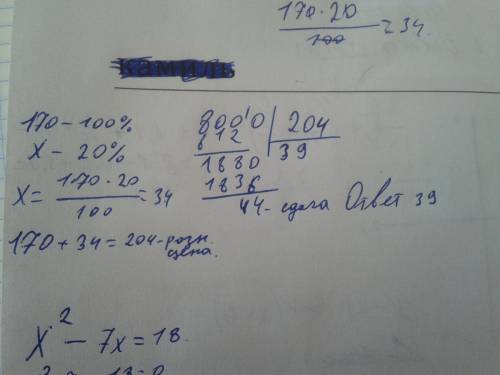 170·20
―――― = 34
100
170 – 100%
X – 20%
X = 170·20 / 100 = 34
170 + 34 = 204 - розн. цена.
8000 | 204
612 | 39
1880
1836
44 - сдача Ответ 39
X² – 7x = 18.